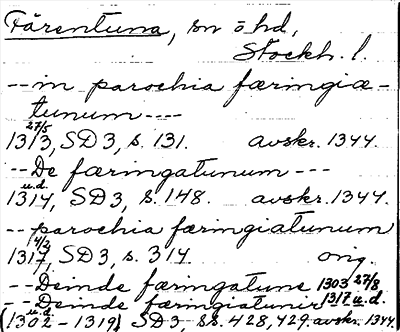 Färentuna, sn o hd,
Stockh. l.
-- in parochia færingiæ-
tunum ----
27/5
1313, SD 3, s. 131. avskr. 1344.
-- De færingatunum ---
u.d.
1314, SD 3, s. 148. avskr. 1344.
-- parochia færingiatunum
4/2
1317, SD 3, s. 314. orig.
-- Deinde færingatune 1303 27/8
-- Deinde færingiatunir 1317 u.d.
u.d.
(1302 - 1319) SD 3, ss. 428, 429. avskr. 1344.